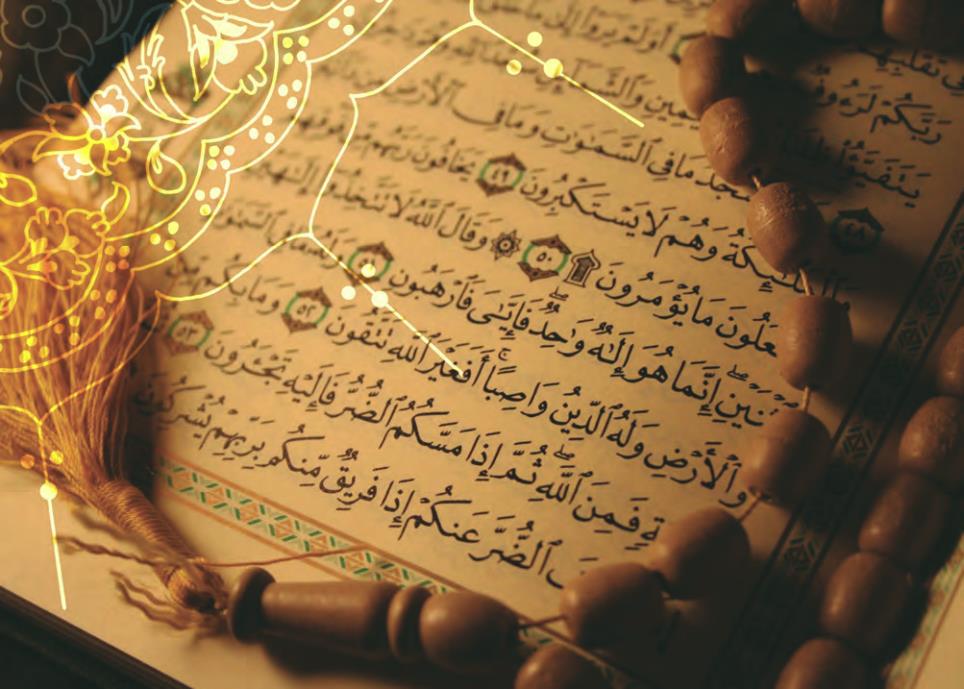 تَقَلُّبِهِمْ
رَبَّكُمْ لَرَءُوفٌ أَوَلَمْ يَرَوْا۟ إِلَىٰ
يَتَفَيَّؤُا۟ ظِلَٰلُهُ وَٱلشَّمَآئِلِ
٤٨ يَسْجُدُ مَا فِى ٱلسَّمَٰوَٰتِ وَمَا فِى ٱلْأَرْضِ
وَٱلْمَلَٰٓئِكَةُ وَهُمْ لَا يَسْتَكْبِرُونَ ٤٩ يَخَافُونَ رَبَّهُم مِّن فَوْقِهِمْ
وَيَفْعَلُونَ مَا يُؤْمَرُونَ ۩ ٥٠ ۞ وَقَالَ ٱللَّهُ لَا تَتَّخِذُوٓا۟ إِلَٰهَيْنِ
ٱثْنَيْنِ ۖ إِنَّمَا هُوَ إِلَٰهٌ وَٰحِدٌ ۖ فَإِيَّٰىَ فَٱرْهَبُونِ ٥١ وَلَهُۥ مَا فِى ٱلسَّمَٰوَٰتِ
وَٱلْأَرْضِ وَلَهُ ٱلدِّينُ وَاصِبًا ۚ أَفَغَيْرَ ٱللَّهِ تَتَّقُونَ ٥٢ وَمَا بِكُم مِّن
فَمِنَ ٱللَّهِ ۖ ثُمَّ إِذَا مَسَّكُمُ ٱلضُّرُّ فَإِلَيْهِ تَجْـَٔرُونَ ٥٣
ٱلضُّرَّ عَنكُمْ إِذَا فَرِيقٌ مِّنكُم بِرَبِّهِمْ يُشْرِكُونَ